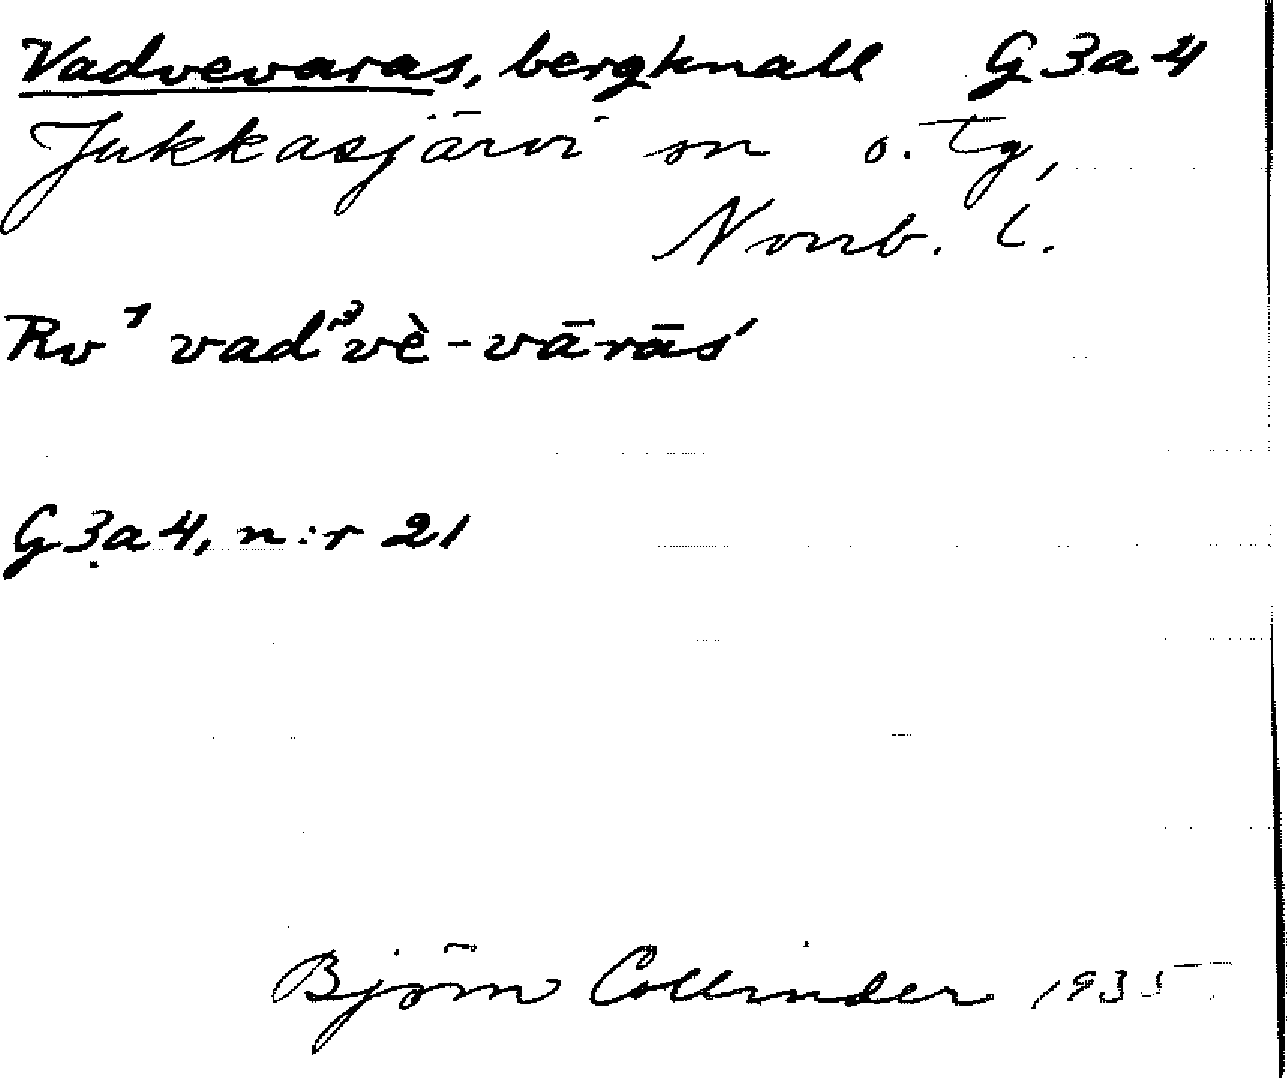 Vadvevaras, bergknall G 3 a 4
Jukkasjärvi sn o. tg,
Norrb. l.
Rv ˀ vadˀvè-vārāś
G 3 a 4, n:r 21
Björn Collinder 1935